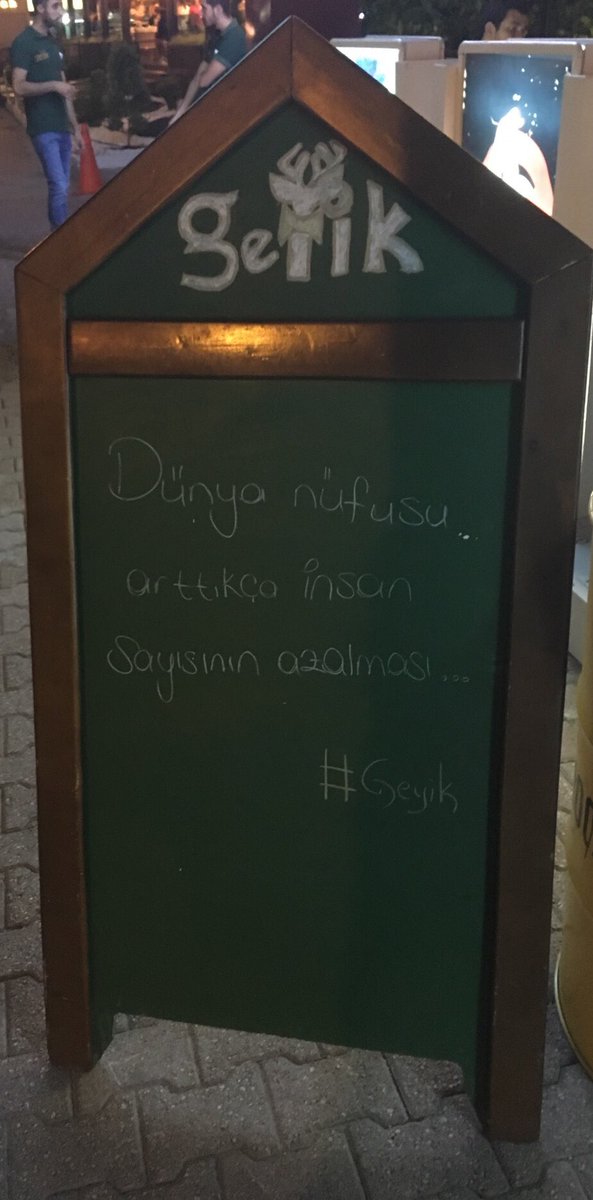 geyik
Dünya nüfusu...
arttıkça insan
sayısının azalması...
#Geyik